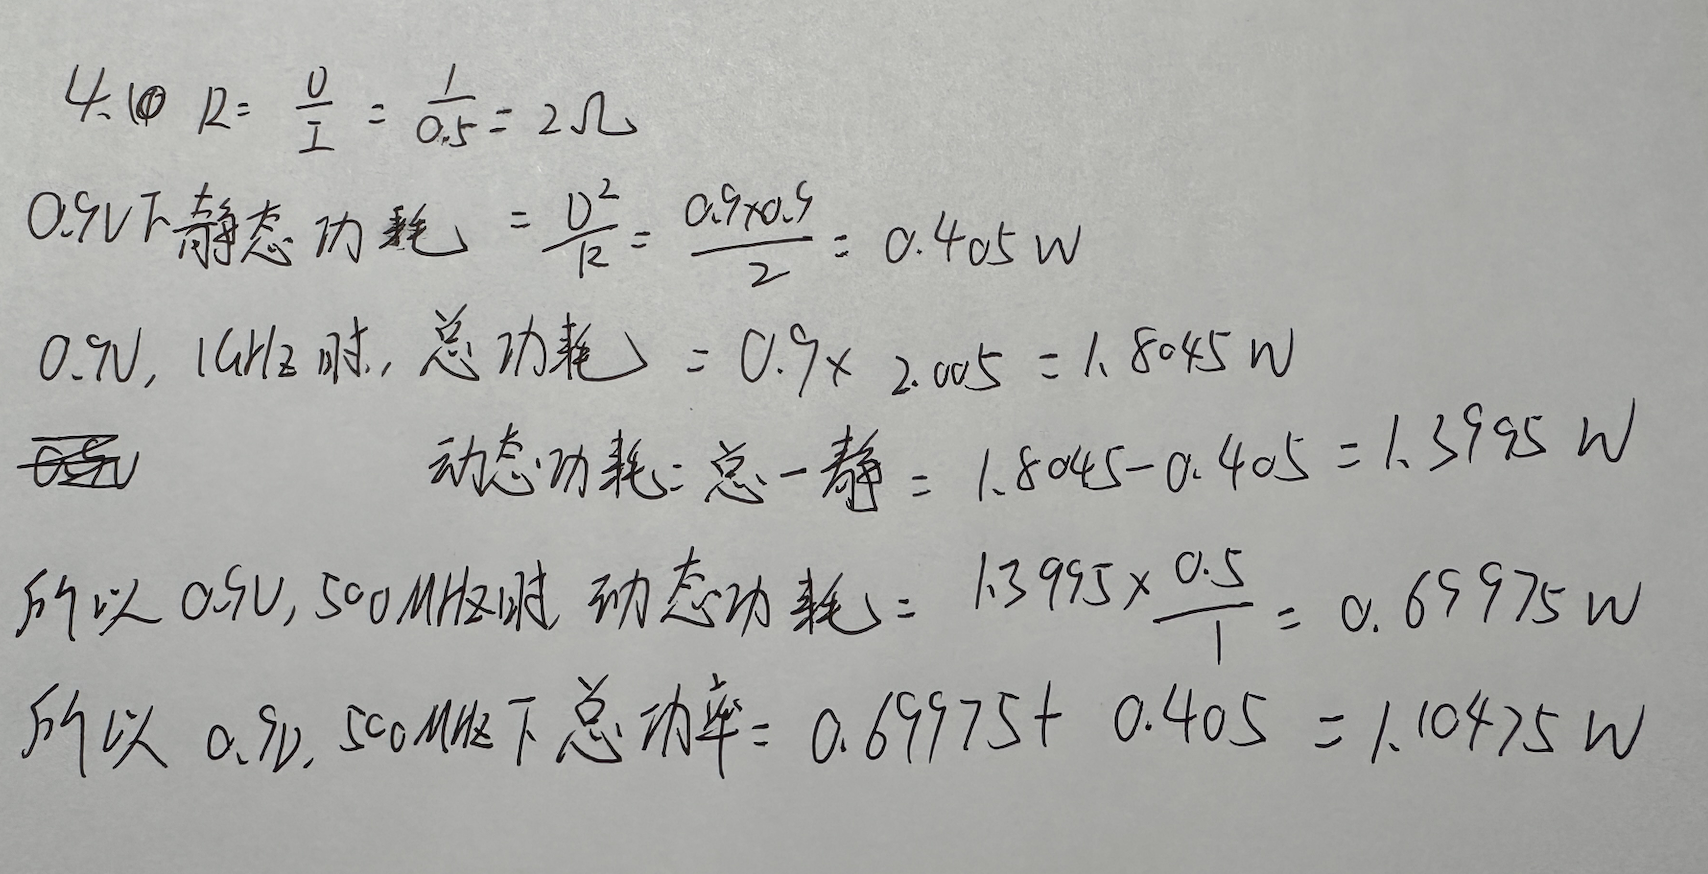 4.(1) R= U/I = 1/0.5 = 2Ω
0.9V下静态功耗 = U²/R = 0.9×0.9/2 = 0.405W
0.9V, 1GHz时, 总功耗 = 0.9× 2.005 = 1.8045W
动态功耗=总-静 = 1.8045-0.405=1.3995W
所以 0.9V, 500MHz时 动态功耗= 1.3995× 0.5/1 = 0.69975W
所以 0.9V, 500MHz下总功率= 0.69975+ 0.405 =1.10475W